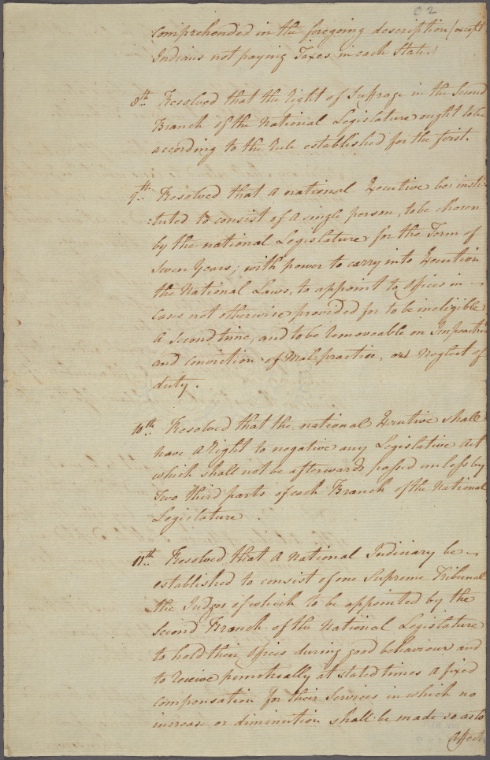 62
Comprehended in the foregoing description (except
Indians not paying Taxes in each State)
8th. Resolved that the right of Suffrage in the Second
Branch of the National Legislature ought to be
according to the rule established for the first.
9th. Resolved that a national Executive be insti
:tuted to consist of a single person, to be chosen
by the national Legislature for the Term of
Seven Years; with power to carry into Execution
the National Laws, to appoint to Offices in
Cases not otherwise provided for to be ineligible
a Second time, and to be removeable on Impeachmt
and conviction of Malepractice, or Neglect of
duty.
10th. Resolved that the national Executive shall
have a right to negative any Legislative Act
which shall not be afterwards passed unless by
Two third parts of each Branch of the National
Legislature
11th. Resolved that a National Judiciary be
established to consist of one Supreme Tribunal
the Judges of which to be appointed by the
Second Branch of the National Legislature
to hold their offices during good behaviour and
to receive punctually at stated times a fixed
compensation for their Services in which no
increase or diminution shall be made so as to
affect